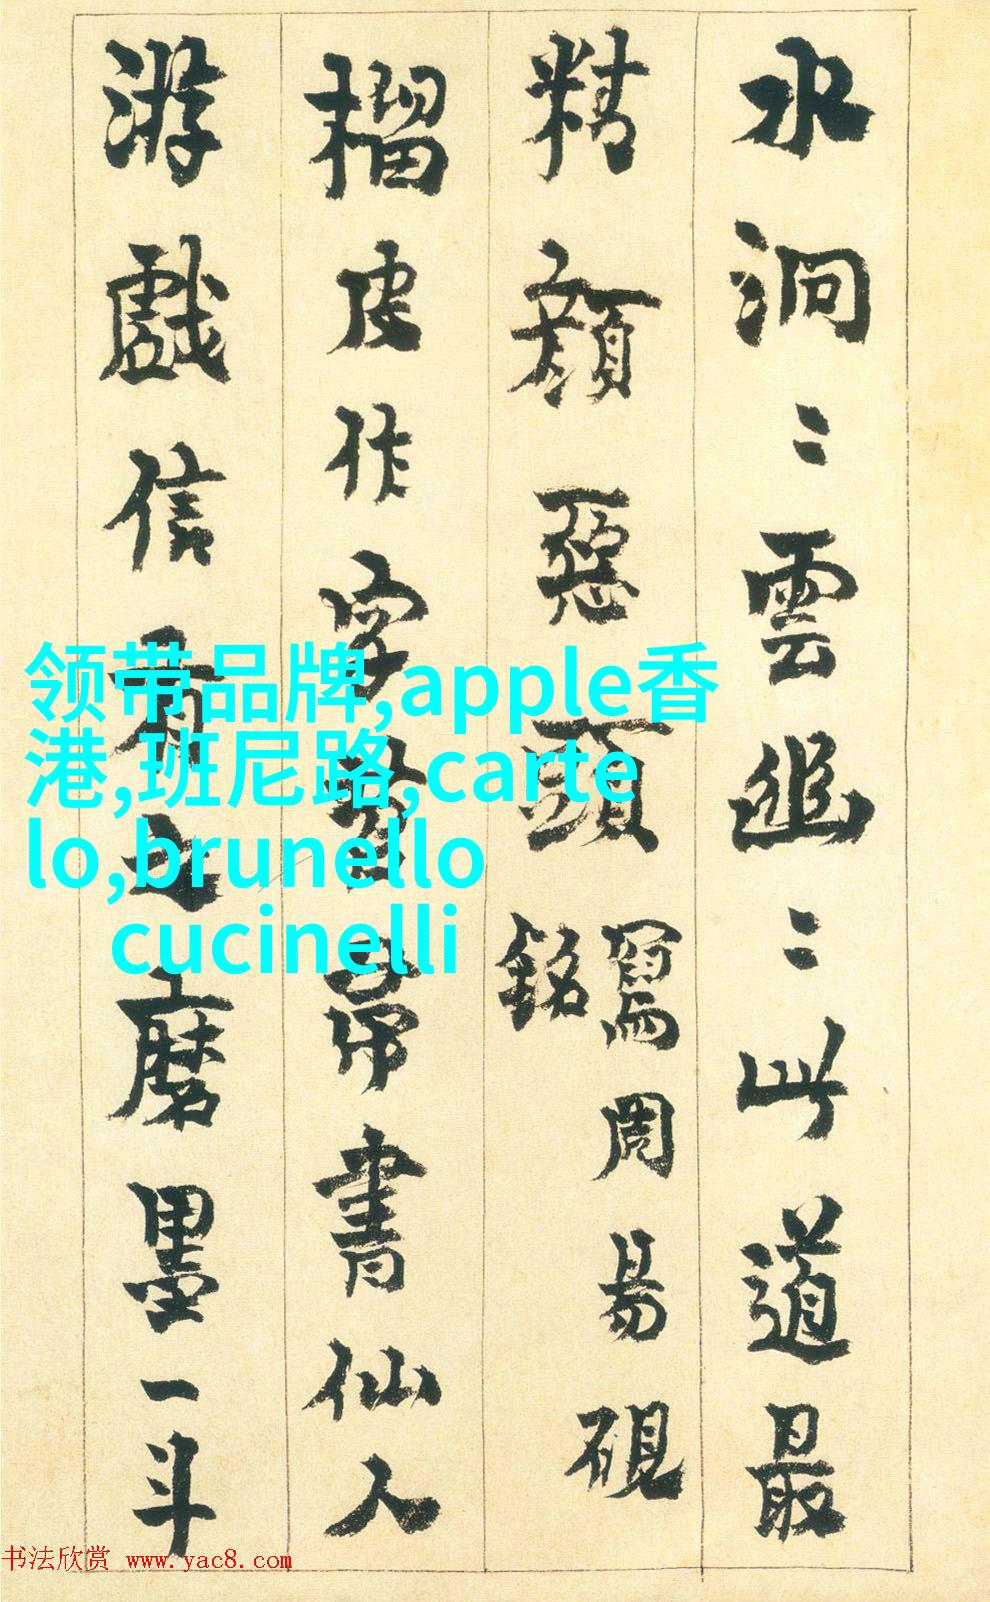 水洞〻雲幽〻此道最
精顏惡頭
寫周易硯
銘
榴皮作字苕帚書仙人
游戲信有之磨墨一斗
领带品牌,apple香
港,班尼路,carte
lo,brunello
cucinelli
书法欣赏 www.yac8.com